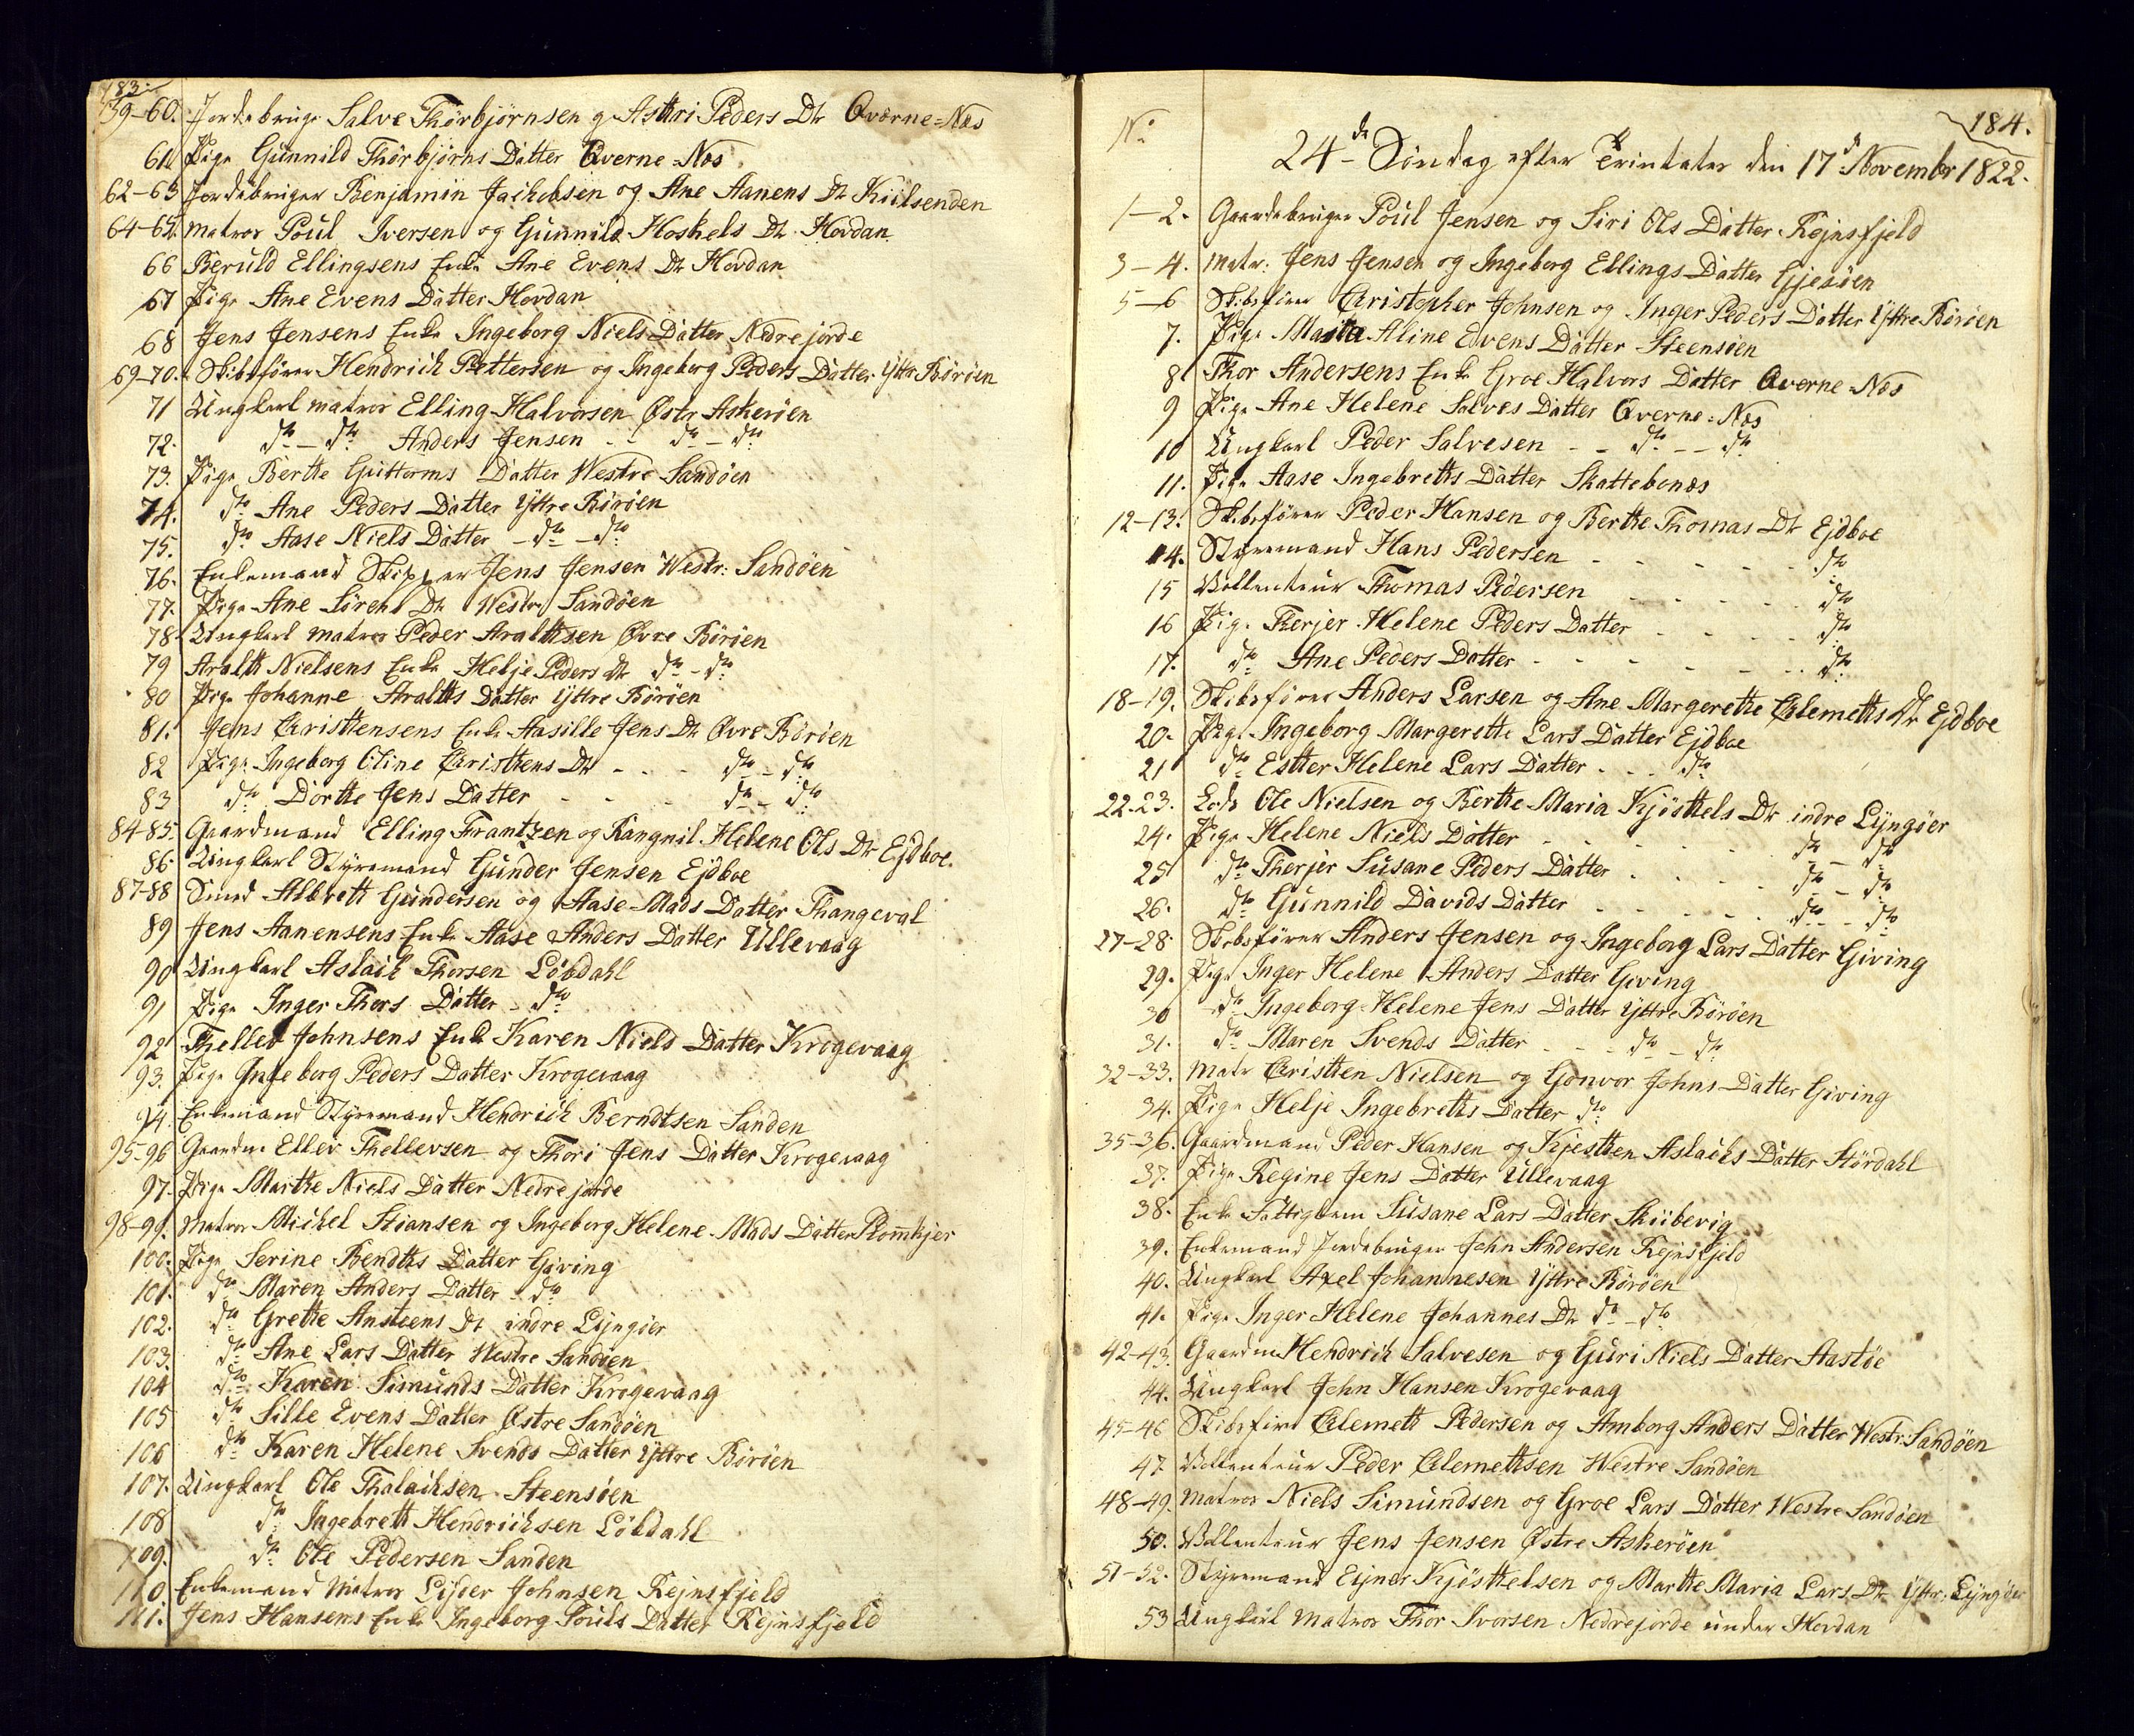 183.
59-60. Jordebruger Salve Thorbjørnsen og Asthri Peders Dtr Qværne-Næs
61. Pige Gunnild Thorbjørns Datter Qverne-Nes
62-63 Jordebruger Benjamin Jachobsen og Ane Aanens Dtr Kiilsenden
64-65. Matros Poul Iversen og Gunnild Hoskels Dtr. Hovdan
66 Beruld Ellingsens Enke Ane Evens Dtr Hovdan
67 Pige Ane Evens Datter Hovdan
68 Jens Jensens Enke Ingeborg Niels Datter Nedrejorde
69-70. Skibsfører Hendrich Pettersen og Ingeborg Peders Datter Yttr Börøen
71 Ungkarl matros Elling Halvorsen Østr Askerøen
72. dto - dto Anders Jensen - - dto - dto
73. Pige Berthe Gutterms Datter Westre Sandøen
74. dto Ane Peders Datter Yttre Börøen
75. dto Aase Niels Datter - dto - dto
76. Enkemand Skipper Jens Jensen Westr: Sandøen
77. Pige Ane Sørens Dtr Westre Sandøen
78 Ungkarl matros Peder Aralthsen Øvre Börøen
79 Aralth Nielsens Enke Helje Peders Dtr dto - dto
80 Pige Johanne Aralths Datter Yttre Börøen
81. Jens Christensens Enke Aasille Jens Dtr Øvre Börøen
82 Pige Ingeborg Oline Christens Dtr - - - dto - dto
83 dto Dorthe Jens Datter - - - dto - dto
84-85. Gaardmand Elling Frantzen og Rangnil Helene Ols Dtr Ejdboe.
86. Ungkarl Styremand Gunder Jensen Ejdboe
87-88 Smed Albrett Gundersen og Aase Mads Datter Thangeval
89 Jens Aanensens Enke Aase Anders Datter Ullevaag
90 Ungkarl Aslach Thorsen Löbdahl
91 Pige Inger Thors Datter - dto
92 Thellev Johnsens Enke Karen Niels Datter Krogevaag
93. Pige Ingeborg Peders Datter Krogevaag
94. Enkemand Styremand Hendrich Berndtsen Sanden
95-96 Gaardm. Ellev Thellevsen og Thori Jens Datter Krogevaag
97. Pige Marthe Niels Datter Nedrejorde
98-99. Matros Michel Stiansen og Ingeborg Helene Mads Datter Plomhjer
100. Pige Serine Bendths Datter Giving
101. dto Maren Anders Datter - dto
102. dto Grethe Ansteens Dtr indre Lyngøer
103. dto Ane Lars Datter Westre Sandøen
104 dto Karen Simunds Datter Krogevaag
105 dto Sille Evens Datter Østre Sandøen
106 dto Karen Helene Svends Datter Yttre Börøen
107. Ungkarl Ole Thalachsen Steensøen
108 dto Ingebreth Hendrichsen Löbdahl
109. dto Ole Pedersen Sanden
110 Enkemand Matros Lyder Johnsen Rejnsfjeld
111. Jens Hansens Enke Ingeborg Pouls Datter Rejnsfjeld
184.
No
24de Søndag efter Trinitates den 17de Novembr 1822.
1-2. Gaardebruger Poul Jensen og Siri Ols Datter Rejnsfjeld
3-4. Matr: Jens Jensen og Ingeborg Ellings Datter Gjesøen
5-6 Skibsfører Christopher Johnsen og Inger Peders Datter Yttre Börøen
7. Pige Maria Aline Evens Datter Steensøen
8 Thor Andersens Enke Groe Halvors Datter Qverne-Nes
9 Pige Ane Helene Salves Datter Qverne-Nes
10 Ungkarl Peder Salvesen - - dto - - dto
11. Pige Aase Ingebreths Datter Skattebonæs
12-13. Skibsfører Peder Hansen og Berthe Thomas Dtr Ejdboe
14. Styremand Hans Pedersen - - - - - dto
15 Vollenteur Thomas Pedersen - - - - dto
16 Pige Therjer Helene Peders Datter - - - - dto
17. dto Ane Peders Datter - - - - - - dto
18-19. Skibsfører Anders Larsen og Ane Margerethe Clemeths Dtr Ejdboe
20. Pige Ingeborg Margerethe Lars Datter Ejdboe
21 dto Esther Helene Lars Datter - - - dto
22-23. Lods Ole Nielsen og Berthe Maria Kjösthels Dtr indre Lyngøer
24. Pige Helene Niels Datter - - - - - dto - dto
25 dto Therjer Susane Peders Datter - - - - dto - dto
26. dto Gunnild Davids Datter - - - - - dto - dto
27-28. Skibsfører Anders Jensen og Ingeborg Lars Datter Giving
29. Pige Inger Helene Anders Datter Giving
30 dto Ingeborg Helene Jens Datter Yttre Börøen
31. dto Maren Svends Datter - - - dto - dto
32-33. Matr Christen Nielsen og Gonvor Johns Datter Giving
34. Pige Helje Ingebreths Datter dto
35-36. Gaardmand Peder Hansen og Kjesthen Aslachs Datter Stördahl
37. Pige Regine Jens Datter Ullevaag
38. Enke Fattiglem Susane Lars Datter Skiibevig
39. Enkemand Jordebruger John Andersen Rejnsfjeld
40. Ungkarl Axel Johannesen Yttre Börøen
41. Pige Inger Helene Johannes Dtr dto - dto
42-43. Gaardm. Hendrich Salvesen og Guri Niels Datter Aastøe
44. Ungkarl John Hansen Krogevaag
45-46 Skibsfører Clemeth Pedersen og Amborg Anders Datter Westr: Sandøen
47 Vollenteur Peder Clemethsen Westre Sandøen
48-49. Matros Niels Simundsen og Groe Lars Datter Westre Sandøen
50. Vollenteur Jens Jensen Østre Askerøen
51-52. Styremand Ejner Kjösthelsen og Marthe Maria Lars Dtr Yttr: Lyngøer
53 Ungkarl Matros Thor Ivorsen Nedrejorde under Hovdan